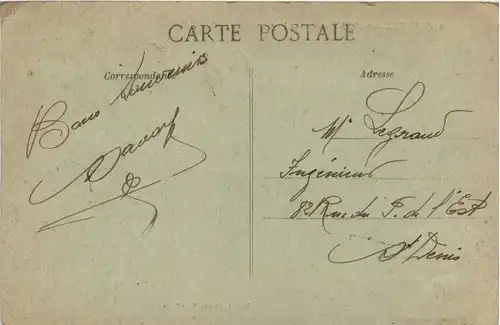 CARTE POSTALE
Correspondance
Adresse
Bons Souvenirs
Mr Legrand
Ingénieur
82 Rue du F. de l'Est
St Denis